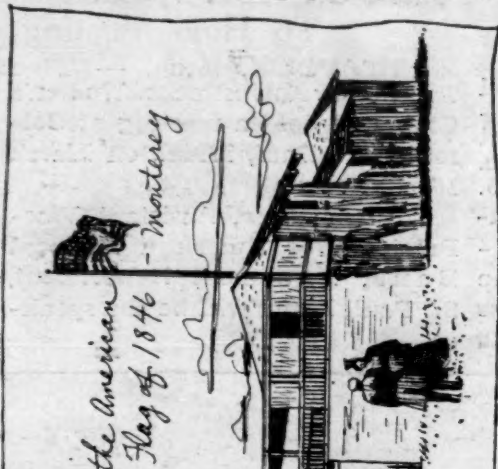 the American
Flag of 1846 - Monterey